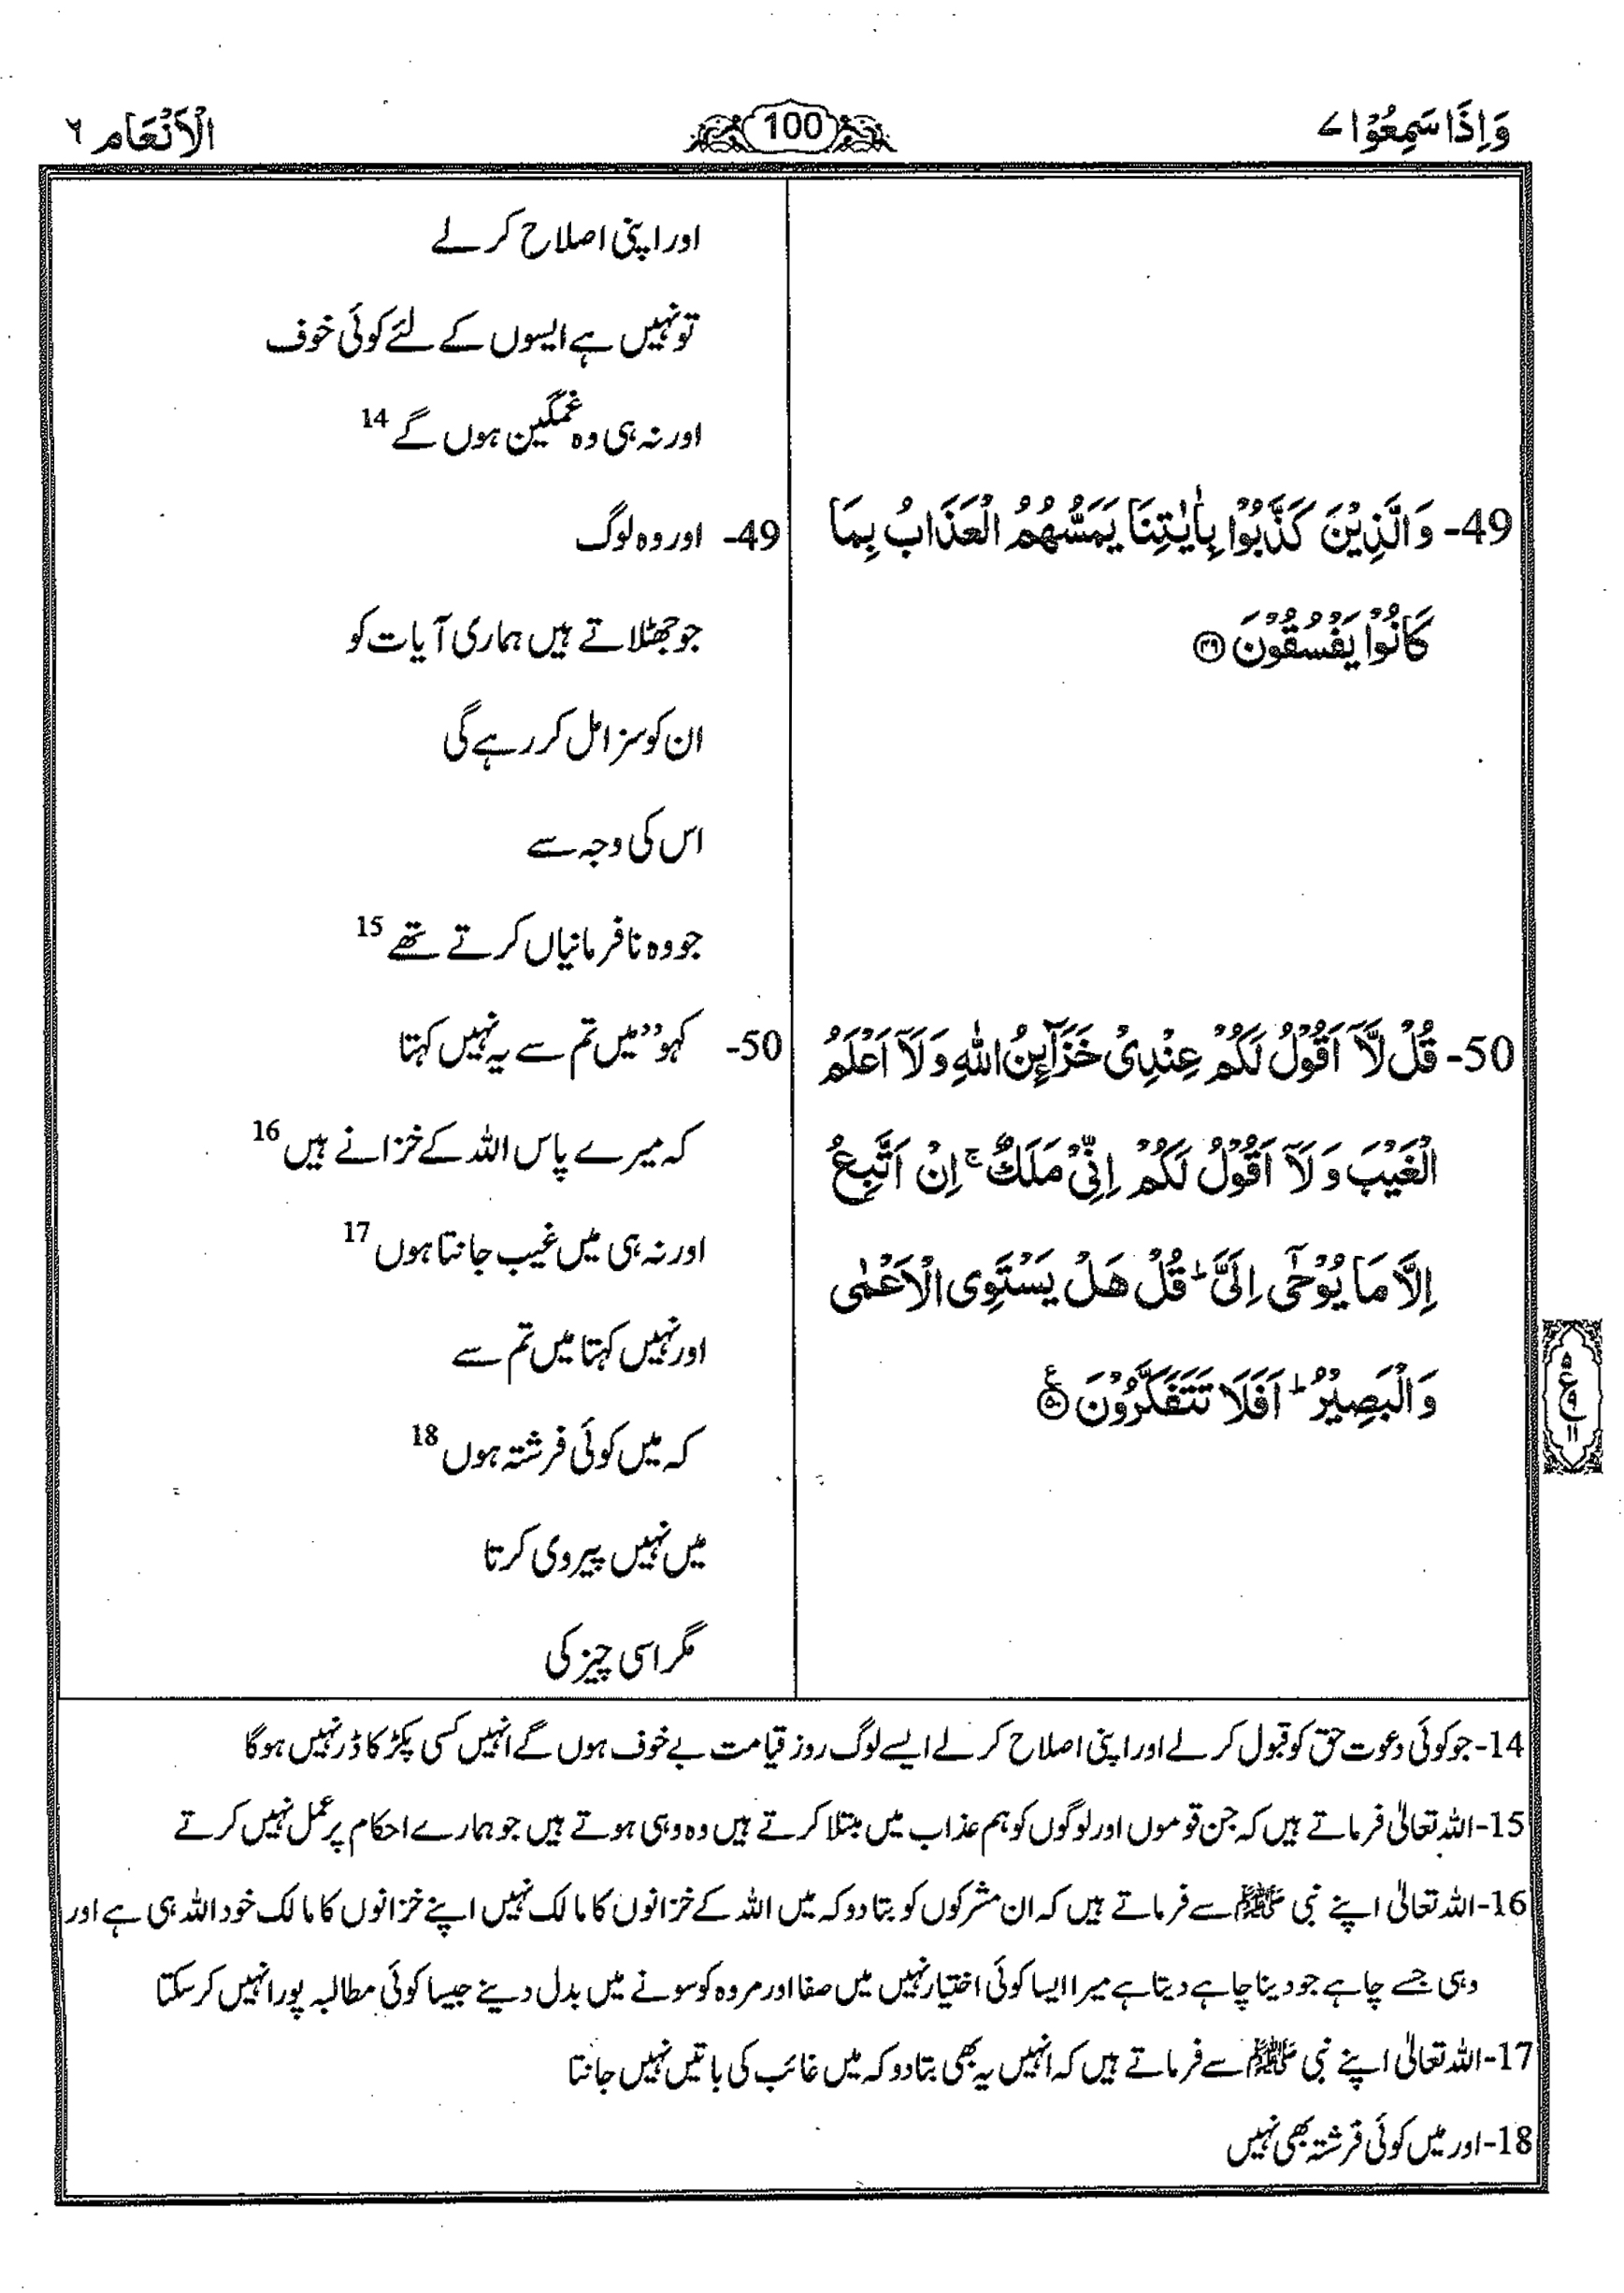 وَاِذَا سَمِعُوْا ۷
100
الْاَنْعَام ٦
49- وَالَّذِيْنَ كَذَّبُوْا بِاٰيٰتِنَا يَمَسُّهُمُ الْعَذَابُ بِمَا
كَانُوْا يَفْسُقُوْنَ ۴۹
50- قُلْ لَّاۤ اَقُوْلُ لَكُمْ عِنْدِیْ خَزَآئِنُ اللّٰهِ وَلَاۤ اَعْلَمُ
الْغَيْبَ وَلَاۤ اَقُوْلُ لَكُمْ اِنِّیْ مَلَكٌ ۚ اِنْ اَتَّبِعُ
اِلَّا مَا يُوْحٰۤی اِلَیَّ ؕ قُلْ هَلْ يَسْتَوِی الْاَعْمٰی
وَالْبَصِيْرُ ؕ اَفَلَا تَتَفَكَّرُوْنَ ۵۰ ع
۵
ع
۹
۱۱
اور اپنی اصلاح کر لے
تو نہیں ہے ایسوں کے لئے کوئی خوف
اور نہ ہی وہ غمگین ہوں گے 14
49- اور وہ لوگ
جو جھٹلاتے ہیں ہماری آیات کو
ان کو سزا مل کر رہے گی
اس کی وجہ سے
جو وہ نافرمانیاں کرتے تھے 15
50- کہو ”میں تم سے یہ نہیں کہتا
کہ میرے پاس اللہ کے خزانے ہیں 16
اور نہ ہی میں غیب جانتا ہوں 17
اور نہیں کہتا میں تم سے
کہ میں کوئی فرشتہ ہوں 18
میں نہیں پیروی کرتا
مگر اسی چیز کی
14- جو کوئی دعوت حق کو قبول کر لے اور اپنی اصلاح کر لے ایسے لوگ روز قیامت بے خوف ہوں گے انہیں کسی پکڑ کا ڈر نہیں ہوگا
15- اللہ تعالیٰ فرماتے ہیں کہ جن قوموں اور لوگوں کو ہم عذاب میں مبتلا کرتے ہیں وہ وہی ہوتے ہیں جو ہمارے احکام پر عمل نہیں کرتے
16- اللہ تعالیٰ اپنے نبی ﷺ سے فرماتے ہیں کہ ان مشرکوں کو بتا دو کہ میں اللہ کے خزانوں کا مالک نہیں اپنے خزانوں کا مالک خود اللہ ہی ہے اور
وہی جسے چاہے جو دینا چاہے دیتا ہے میرا ایسا کوئی اختیار نہیں میں صفا اور مروہ کو سونے میں بدل دینے جیسا کوئی مطالبہ پورا نہیں کر سکتا
17- اللہ تعالیٰ اپنے نبی ﷺ سے فرماتے ہیں کہ انہیں یہ بھی بتا دو کہ میں غائب کی باتیں نہیں جانتا
18- اور میں کوئی فرشتہ بھی نہیں